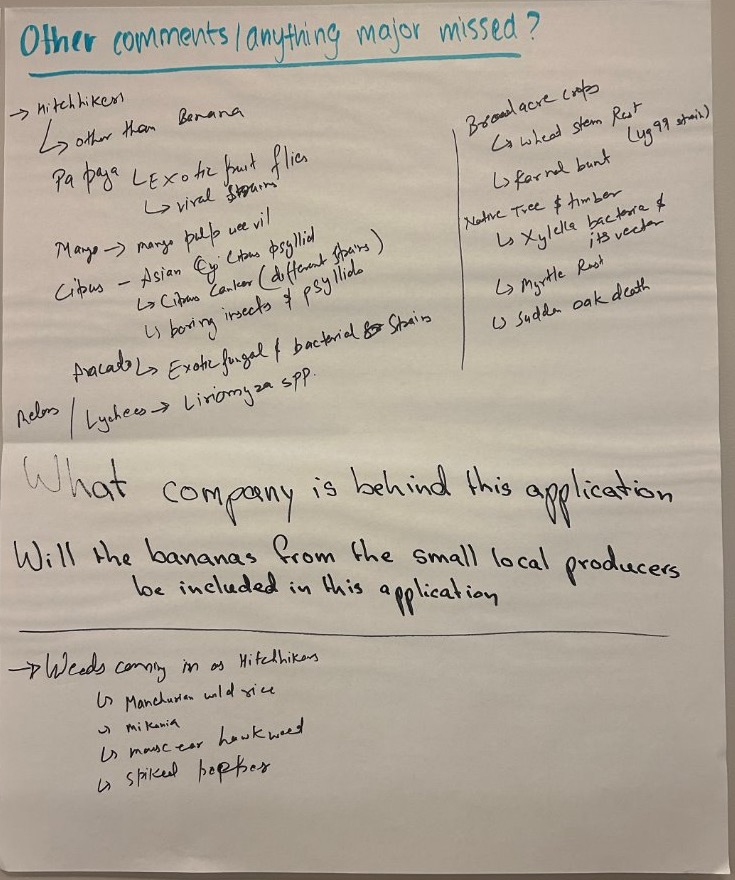 Other comments/anything major missed?
→ Hitchhikers
↳ other than Banana
Papaya ↳ Exotic fruit flies
↳ viral strains
Mango → mango pulp weevil
Citrus - Asian Citrus psyllid
↳ Citrus Canker (different strains)
↳ boring insects & psyllids
Avacado ↳ Exotic fungal & bacterial strains
Melons / Lychees → Liriomyza spp.
Broad acre crops
↳ wheat stem Rust
(ug 99 strain)
↳ Karnal bunt
Native Tree & timber
↳ Xylella bacteria &
its vector
↳ Myrtle Rust
↳ Sudden oak death
What company is behind this application
Will the bananas from the small local producers
be included in this application
→ Weeds coming in as Hitchhikers
↳ Manchurian wild rice
↳ mikania
↳ mouse ear hawkweed
↳ spiked pepper